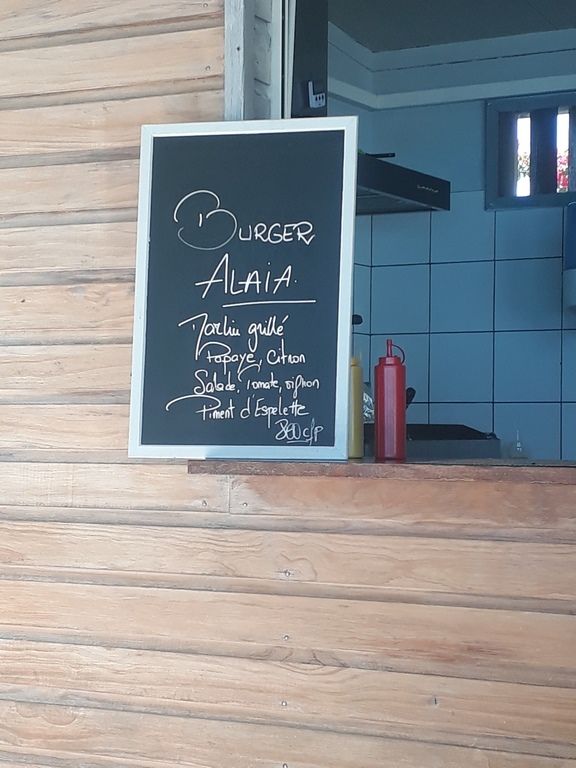 BURGER
ALAIA
Marlin grillé
Papaye, Citron
Salade, Tomate, oignon
Piment d'Espelette